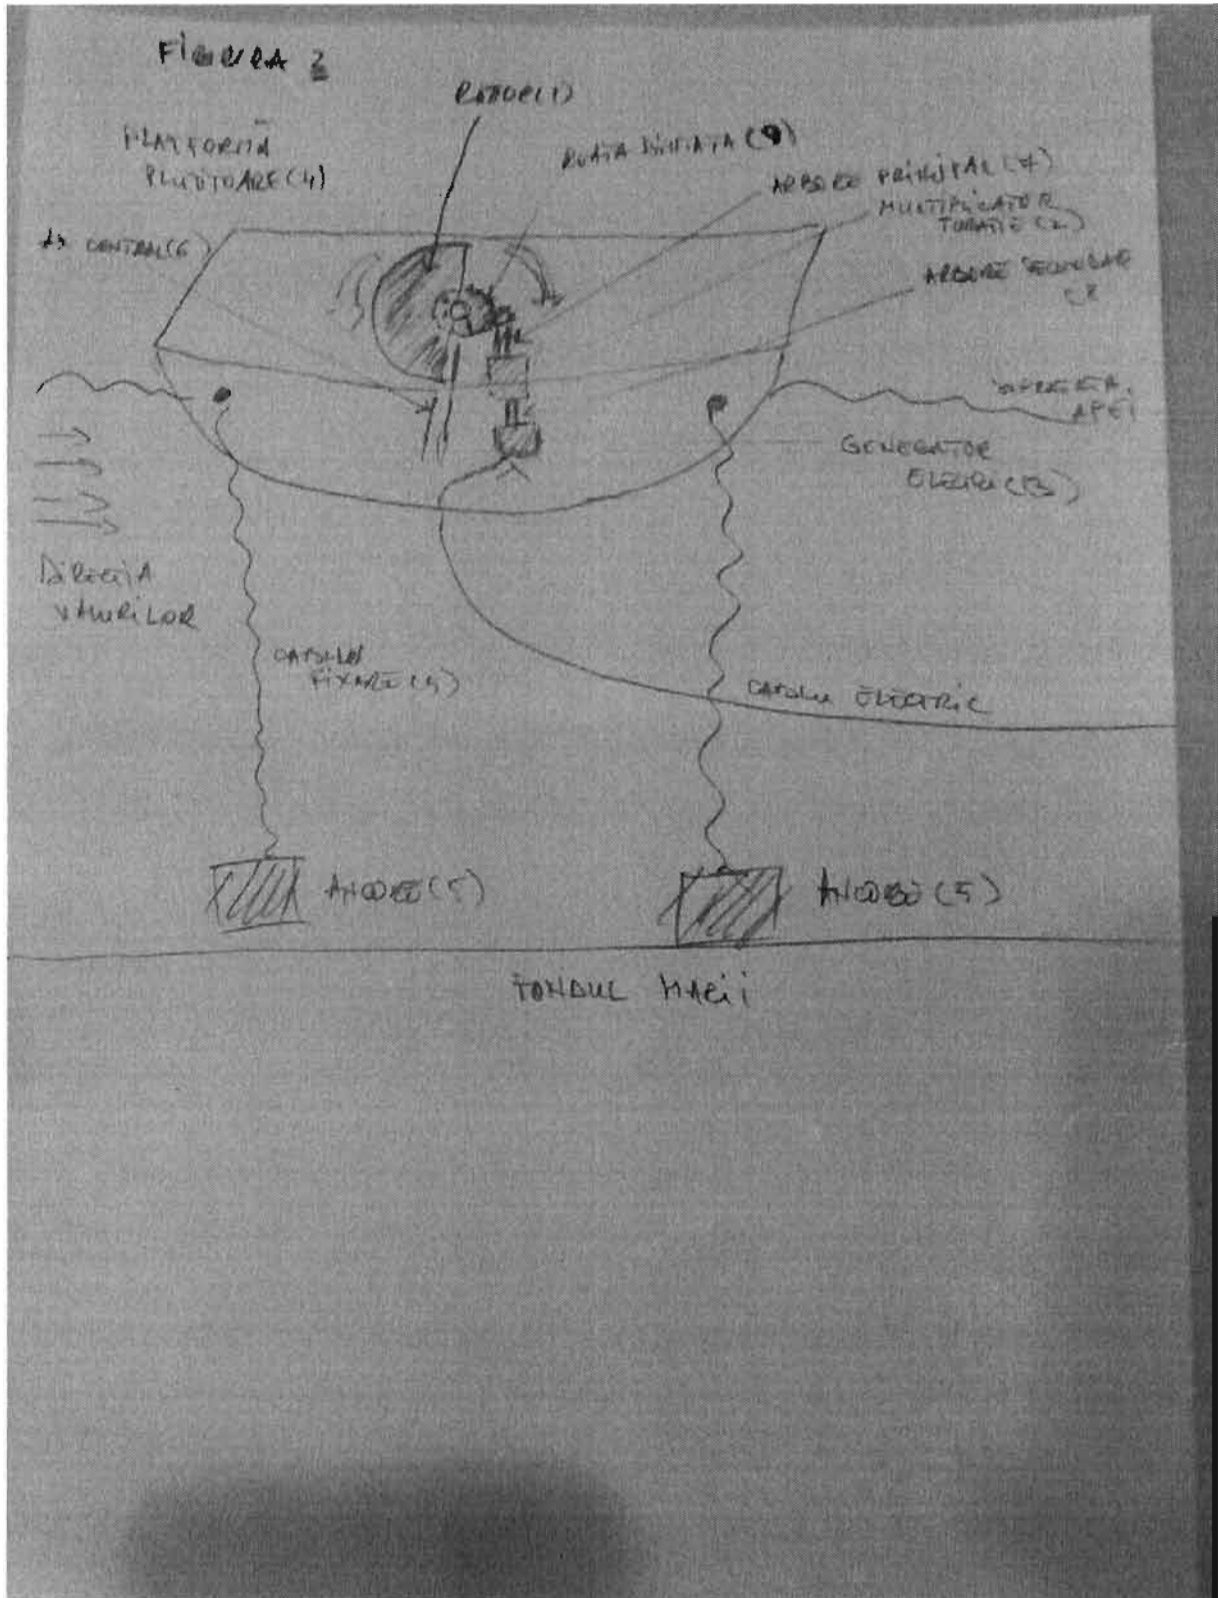 FIGURA 2
ROTOR(1)
PLATFORMĂ
PLUTITOARE(4)
ROATA DINȚATA (9)
ARBORE PRINCIPAL (7)
MULTIPLICATOR
TURAȚIE (2)
AX CENTRAL(6)
ARBORE SECUNDAR
(8
SUPRAFAȚA
APEI
GENERATOR
ELECTRIC(3)
DIRECȚIA
VALURILOR
CABLU
FIXARE(5)
CABLU ELECTRIC
ANCORĂ(5)
ANCORĂ (5)
FONDUL MĂRII